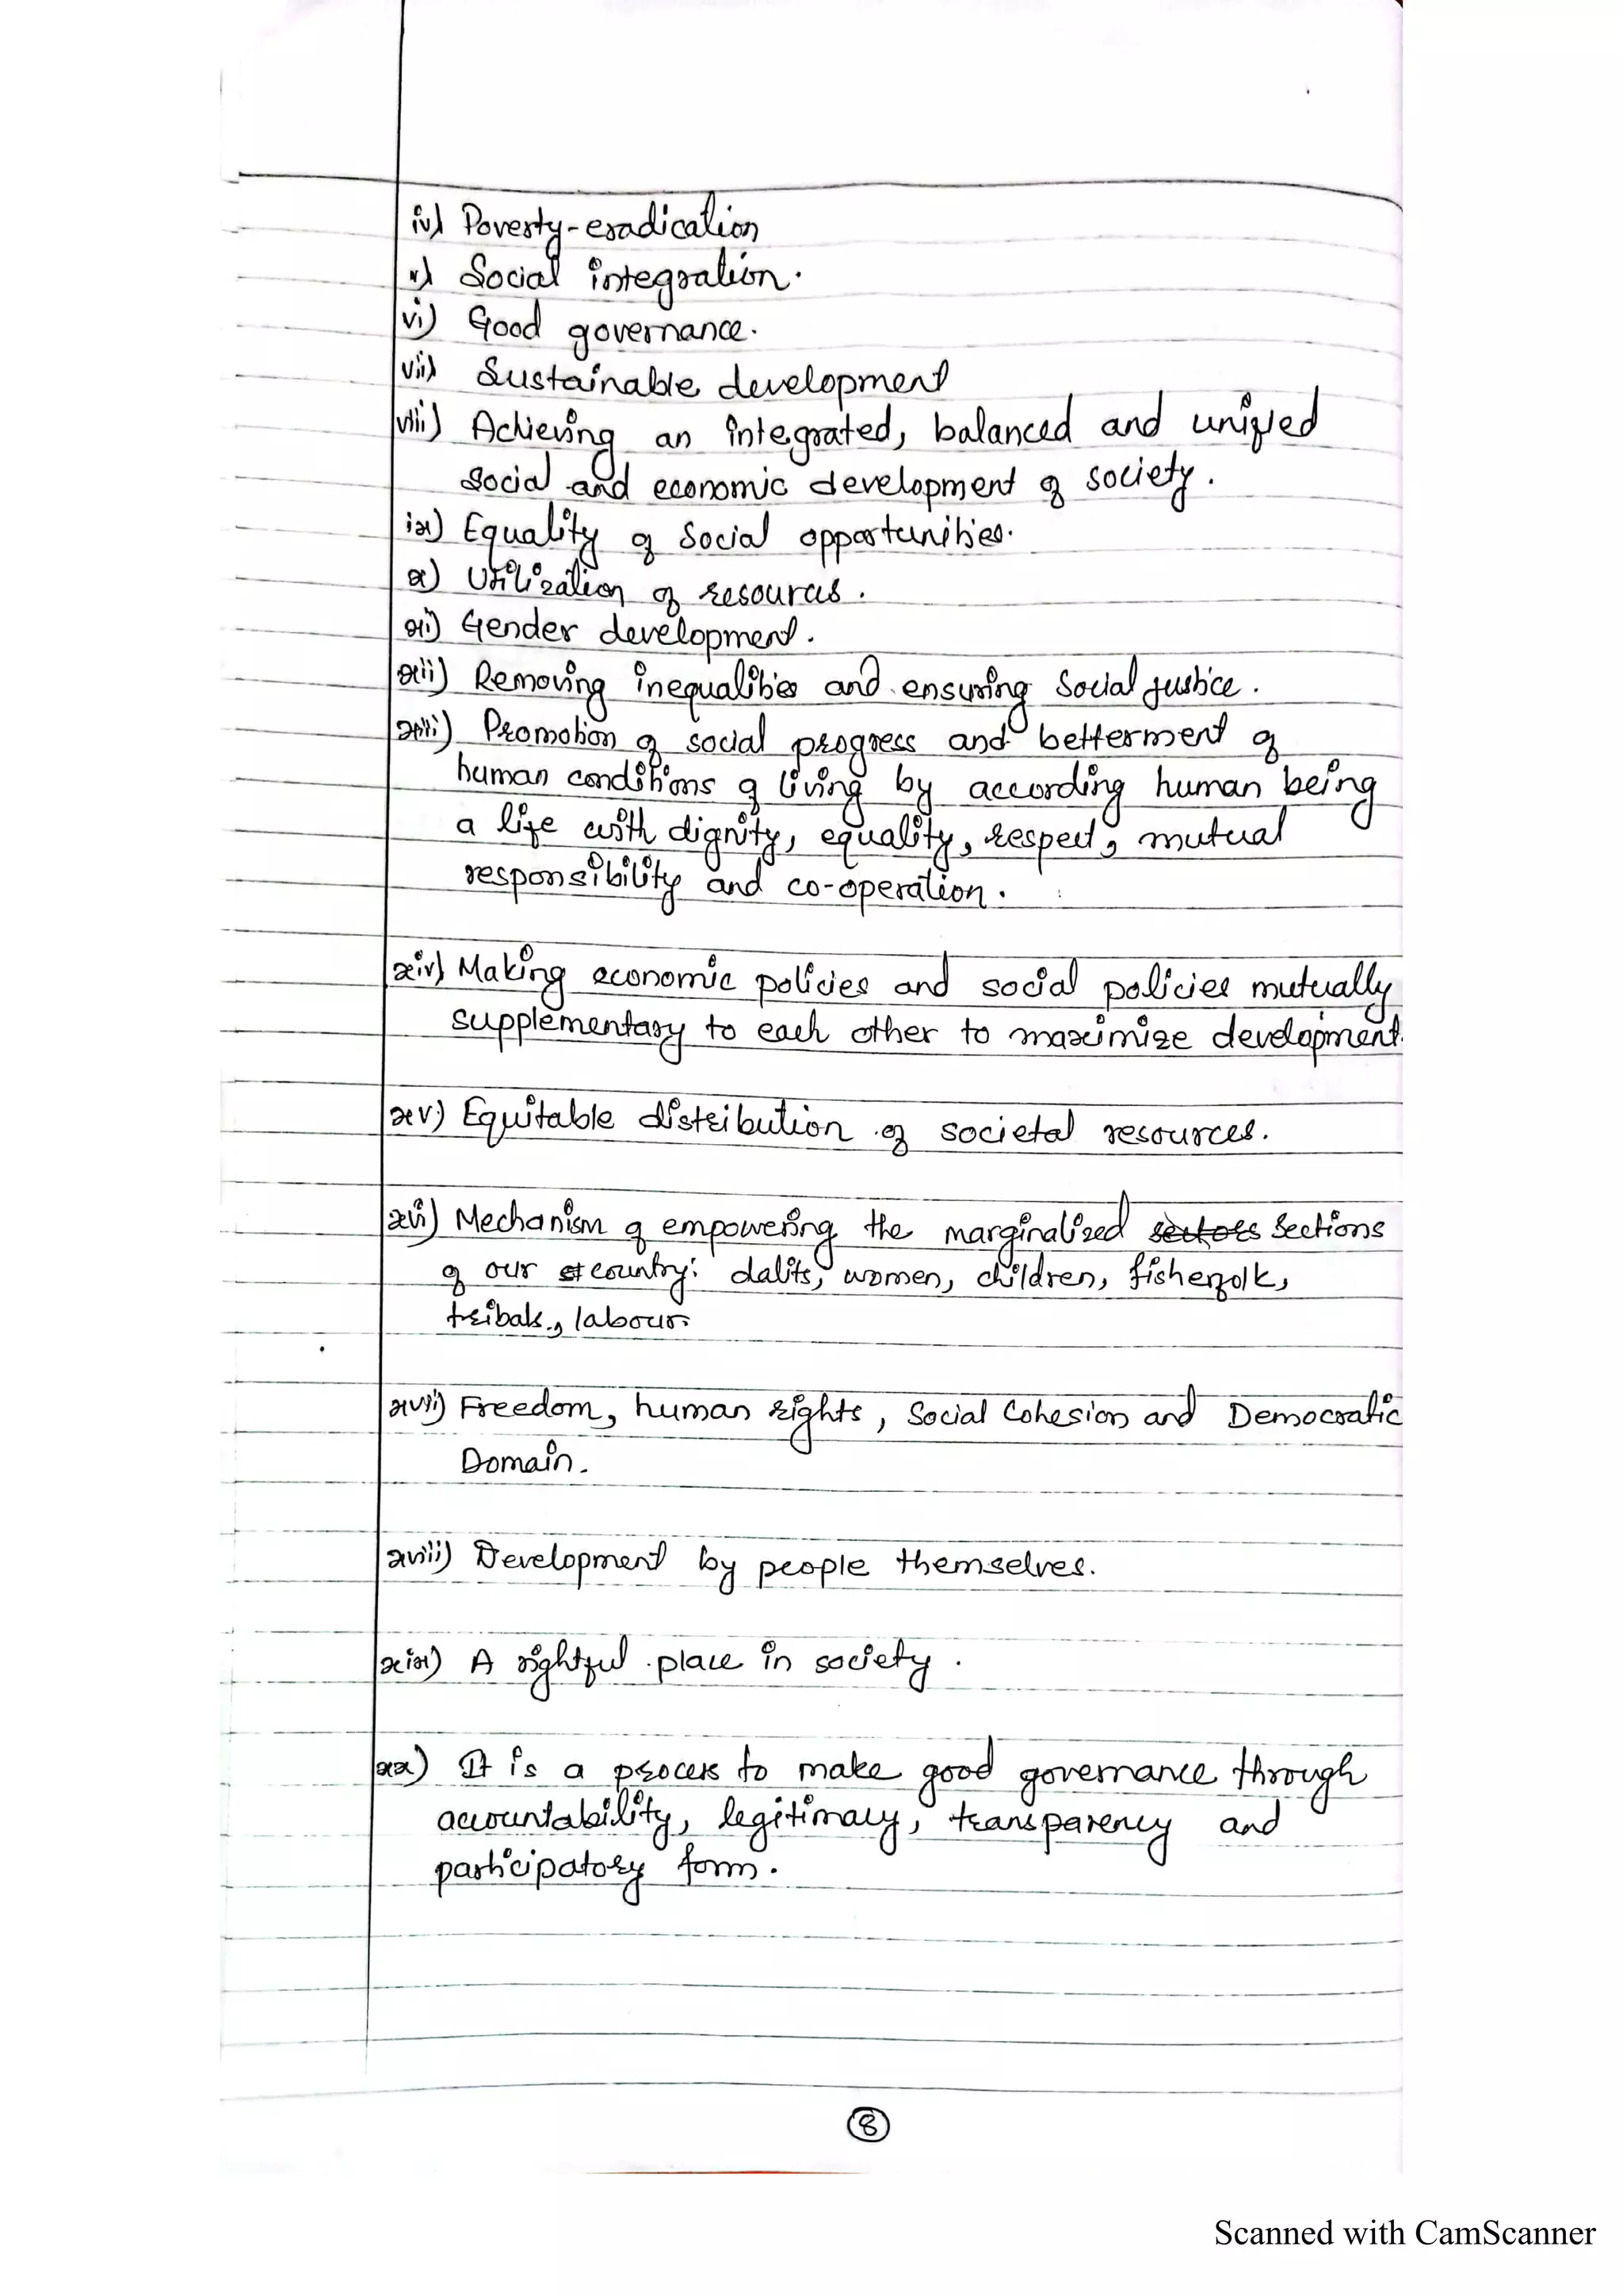 iv) Poverty-eradication
v) Social integration.
vi) Good governance.
vii) Sustainable development
viii) Achieving an integrated, balanced and unified
social and economic development of society.
ix) Equality of Social opportunities.
x) Utilization of resources.
xi) Gender development.
xii) Removing inequalities and ensuring Social justice.
xiii) Promotion of social progress and betterment of
human conditions of living by according human being
a life with dignity, equality, respect, mutual
responsibility and co-operation.
xiv) Making economic policies and social policies mutually
supplementary to each other to maximize development.
xv) Equitable distribution of societal resources.
xvi) Mechanism of empowering the marginalized sectors Sections
of our st country: dalits, women, children, fisherfolk,
tribals, labour.
xvii) Freedom, human rights, Social Cohesion and Democratic
Domain.
xviii) Development by people themselves.
xix) A rightful place in society.
xx) It is a process to make good governance through
accountability, legitimacy, transparency and
participatory form.
8
Scanned with CamScanner